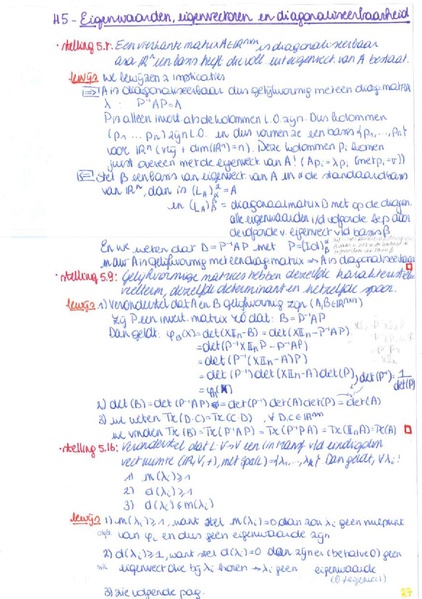 H5 - Eigenwaarden, eigenvectoren en diagonaliseerbaarheid
• stelling 5.8: Een vierkante matrix A∈ℝⁿˣⁿ is diagonaliseerbaar
asa ℝⁿ een basis heeft die volledig uit eigenvect van A bestaat.
bewijs we bewijzen 2 implicaties
⇒ A is diagonaliseerbaar dus gelijkvormig met een diag matrix
λ : P⁻¹AP = λ
P is alleen invb als de kolommen L.O. zijn. Dus kolommen
(p₁ ... pₙ) zijn L.O. en dus vormen ze een basis {p₁,...,pₙ}
voor ℝⁿ (vrij + dim(ℝⁿ)=n). Deze kolommen pᵢ komen
juist overeen met de eigenvect van A! (Apᵢ = λpᵢ (met pᵢ=v))
⇐ Stel β een basis van eigenvect van A en α de standaardbasis
van ℝⁿ, dan is (L_A)α^α = A
en (L_A)β^β = diagonaalmatrix D met op de diagon.
alle eigenwaarden
de volgorde v eigenvect in basis β
En we weten dat D = P⁻¹AP met P = (Id)
dus A is gelijkvormig met een diag matrix ⇒ A is diagonaliseerbaar
• stelling 5.9: Gelijkvormige matrices hebben dezelfde karakteristieke
veelterm, dezelfde determinant en hetzelfde spoor.
bewijs 1) Veronderstel dat A en B gelijkvormig zijn (A,B∈ℝⁿˣⁿ)
Zij P een invert. matrix zodat: B = P⁻¹AP
Dan geldt: φ_B(X) = det(XIₙ-B) = det(XIₙ - P⁻¹AP)
= det(P⁻¹XIₙP - P⁻¹AP)
= det(P⁻¹(XIₙ-A)P)
= det(P⁻¹) det(XIₙ-A) det(P), det(P⁻¹) = 1/det(P)
= φ_A(X)
2) det(B) = det(P⁻¹AP) = det(P⁻¹)det(A)det(P) = det(A)
3) we weten Tr(D.C) = Tr(C.D) , ∀ D,C∈ℝⁿˣⁿ
we vinden Tr(B) = Tr(P⁻¹AP) = Tr(P⁻¹PA) = Tr(IₙA) = Tr(A)
• stelling 5.16: Veronderstel dat L: V→V een lin transf v/d eindigdim
vectruimte (ℝ,V,+), met spec(L) = {λ₁,...,λₖ}. Dan geldt, ∀λᵢ:
1) m(λᵢ)≥1
2) d(λᵢ)≥1
3) d(λᵢ)≤m(λᵢ)
bewijs 1) m(λᵢ)≥1, want stel m(λᵢ)=0 dan zou λᵢ geen nulpunt
van φ_L en dus geen eigenwaarde zijn
2) d(λᵢ)≥1, want stel d(λᵢ)=0 dan zijn er (behalve 0) geen
eigenvect die bij λᵢ horen → λᵢ geen eigenwaarde
3) zie volgende pag.
27